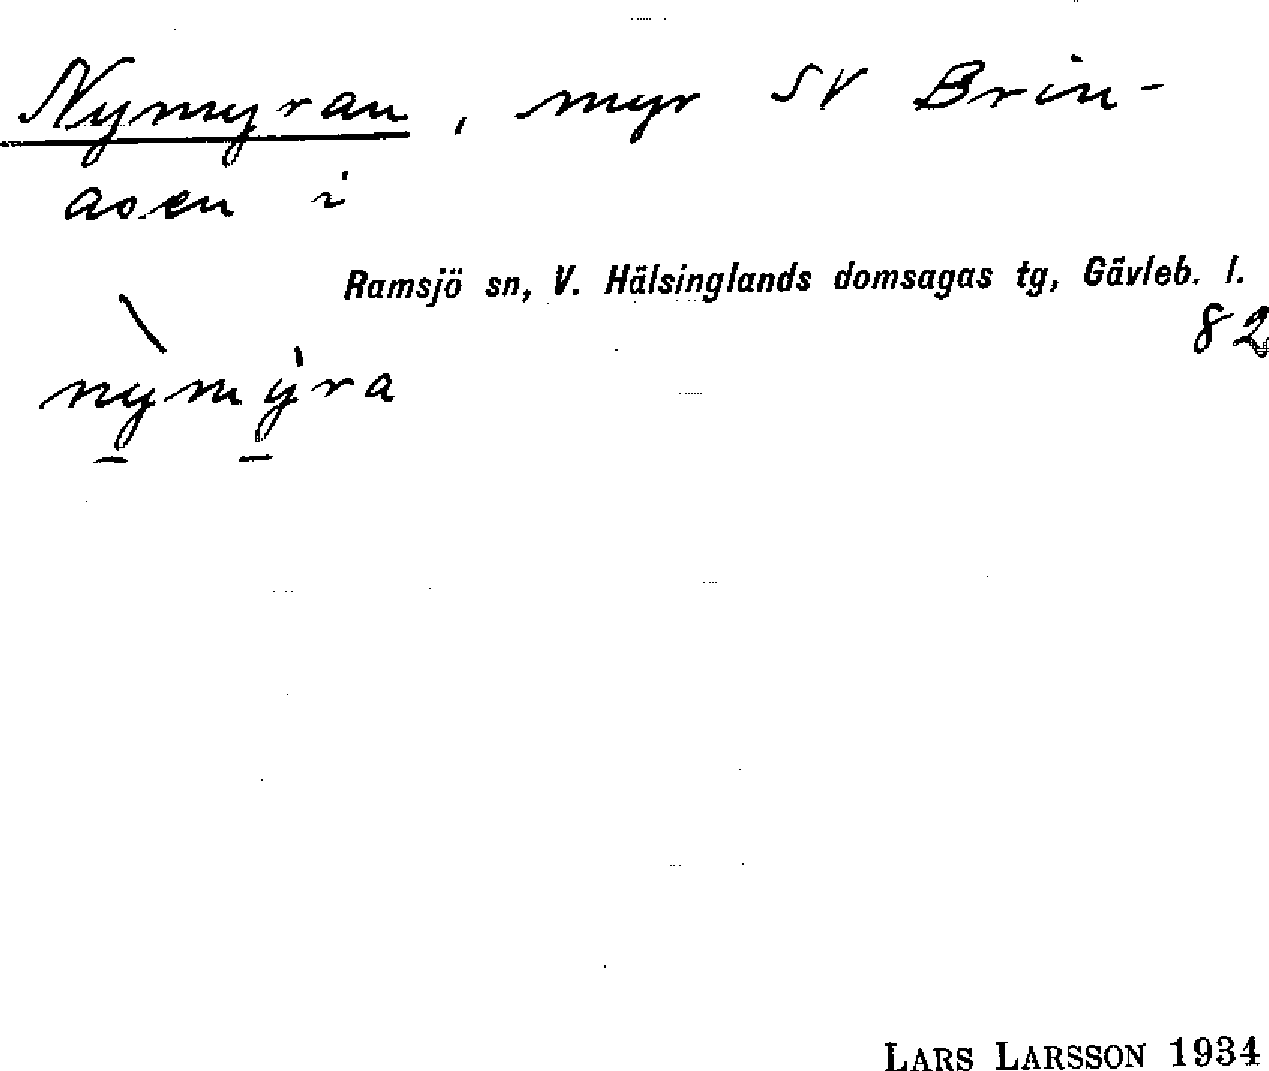 Nymyran, myr SV Brin-
asen i
Ramsjö sn, V. Hälsinglands domsagas tg, Gävleb. l.
82
nỳmýra
LARS LARSSON 1934